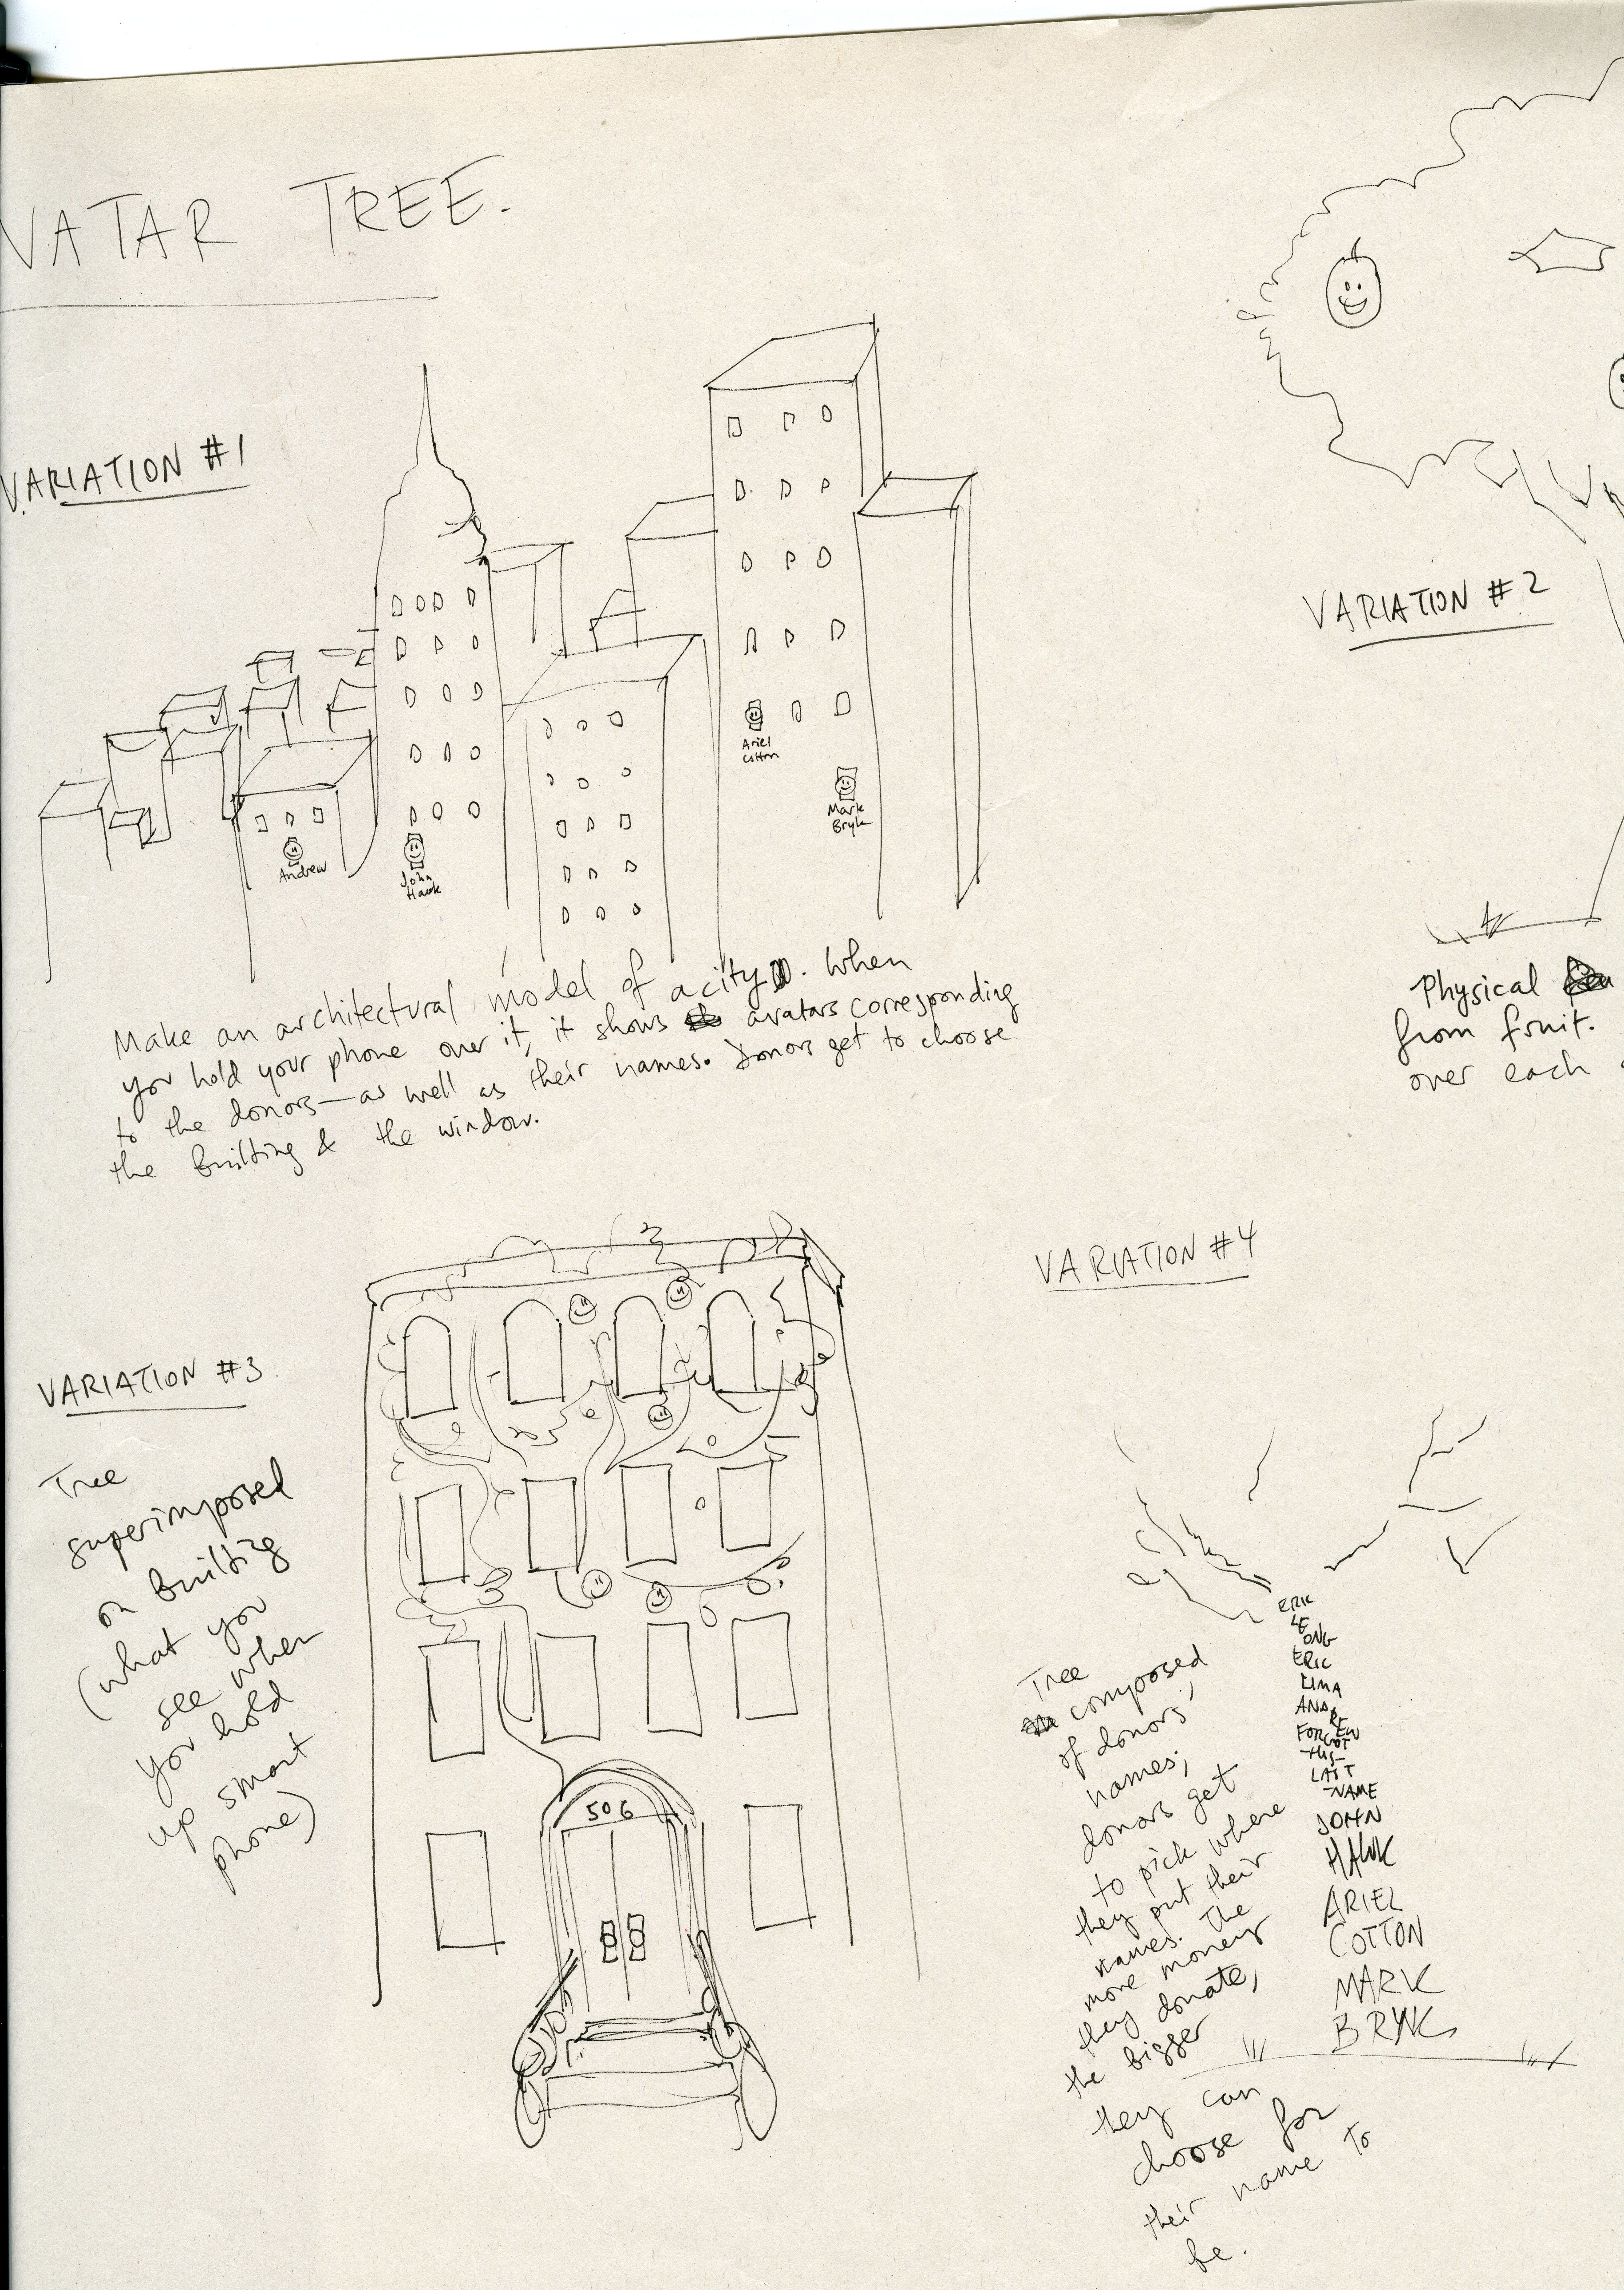 VATAR TREE.
VARIATION #1
Ariel
Cotton
Mark
Bryk
Andrew
John
Hawk
Make an architectural model of a city. When
you hold your phone over it, it shows avatars corresponding
to the donors—as well as their names. Donors get to choose
the building & the window.
VARIATION #2
Physical
from fruit.
over each
VARIATION #3
Tree
superimposed
on building
(what you
see when
you hold
up smart
phone)
506
VARIATION #4
Tree
composed
of donors'
names;
donors get
to pick where
they put their
names. The
more money
they donate,
the bigger
they can
choose for
their name to
be.
ERIC
LE
ONG
ERIC
LIMA
AND
RE
EW
FORGOT
HIS
LAST
NAME
JOHN
HAWK
ARIEL
COTTON
MARK
BRYK